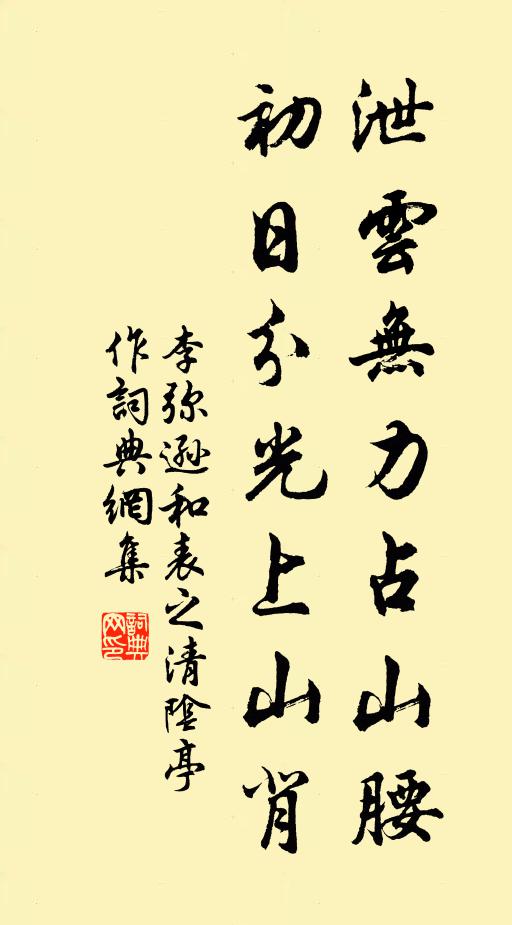 泄雲無力占山腰
初日分光上山背
李弥遜和表之清陰亭
作詞典網集
詞典網印